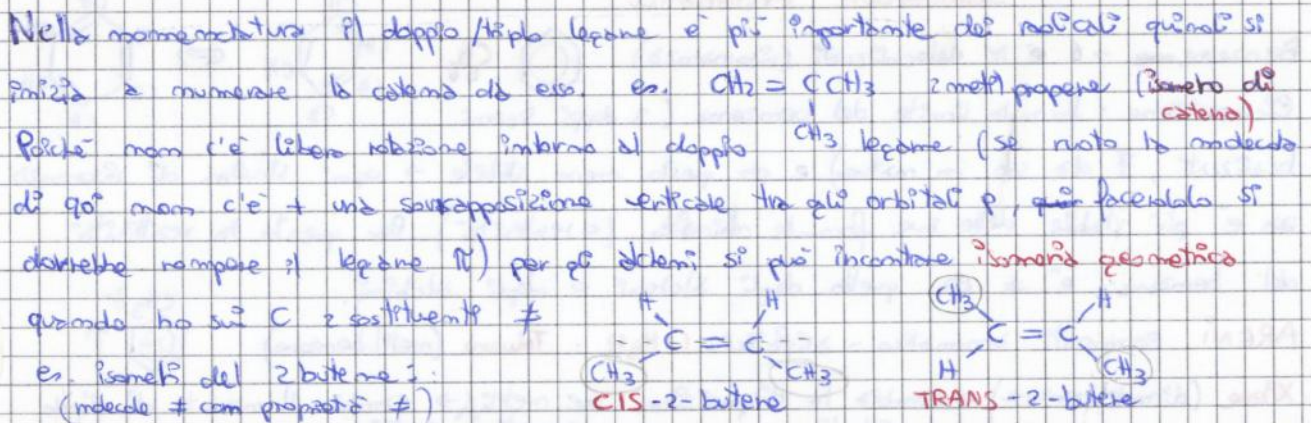 Nella nomenclatura il doppio/triplo legame è più importante dei radicali quindi si
inizia a numerare la catena da esso. es. CH2 = CCH3 2 metil propene (isomero di
CH3 catena)
Poiché non c'è libera rotazione intorno al doppio legame (se ruoto la molecola
di 90° non c'è + una sovrapposizione verticale tra gli orbitali p, facendolo si
dovrebbe rompere il legame π) per gli alcheni si può incontrare isomeria geometrica
quando ho sui C 2 sostituenti ≠
H H CH3 H
C = C C = C
CH3 CH3 H CH3
es. isomeri del 2 butene:
(molecole ≠ con proprietà ≠)
CIS-2-butene TRANS-2-butene